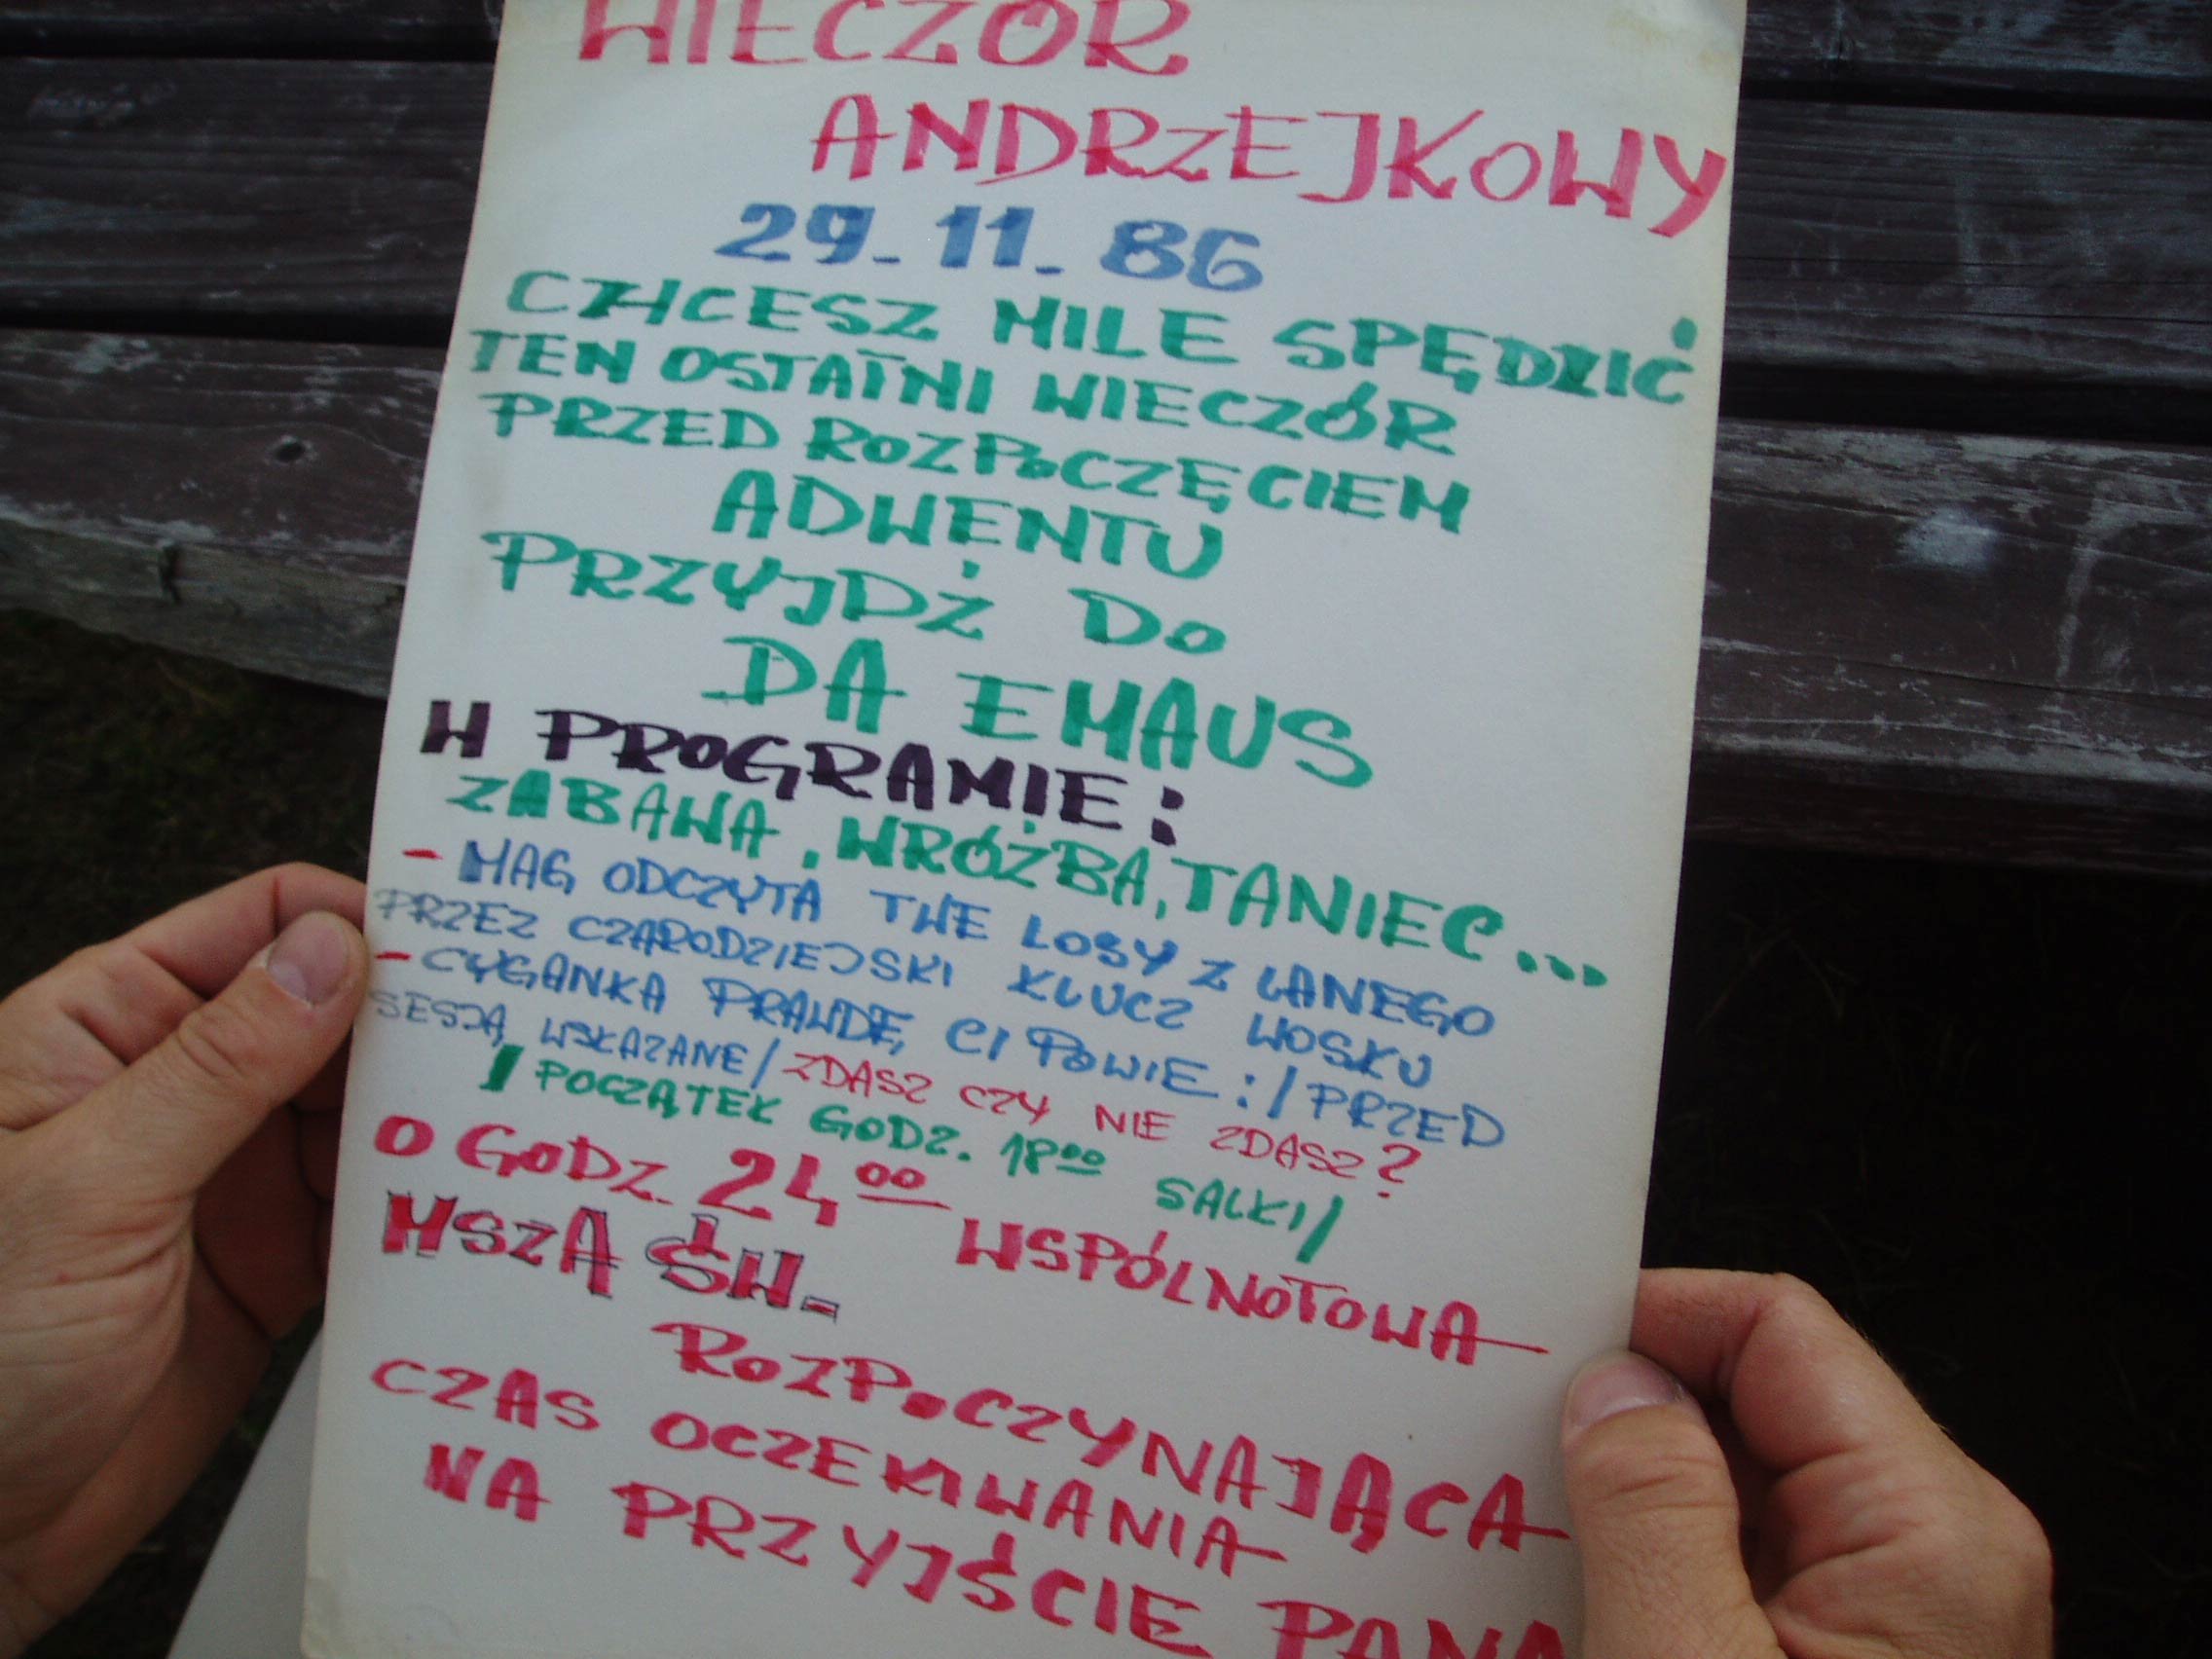 WIECZÓR
ANDRZEJKOWY
29-11-86
CHCESZ MILE SPĘDZIĆ
TEN OSTATNI WIECZÓR
PRZED ROZPOCZĘCIEM
ADWENTU
PRZYJDŹ DO
DA EMAUS
W PROGRAMIE:
ZABAWA, WRÓŻBA, TANIEC...
- MAG ODCZYTA TWE LOSY Z LANEGO
PRZEZ CZARODZIEJSKI KLUCZ WOSKU
- CYGANKA PRAWDĘ CI POWIE:/PRZED
SESJĄ WSKAZANE/ZDASZ CZY NIE ZDASZ?
/POCZĄTEK GODZ. 18⁰⁰ SALKI/
O GODZ. 24⁰⁰ WSPÓLNOTOWA
MSZA ŚW.
ROZPOCZYNAJĄCA
CZAS OCZEKIWANIA
NA PRZYJŚCIE PANA